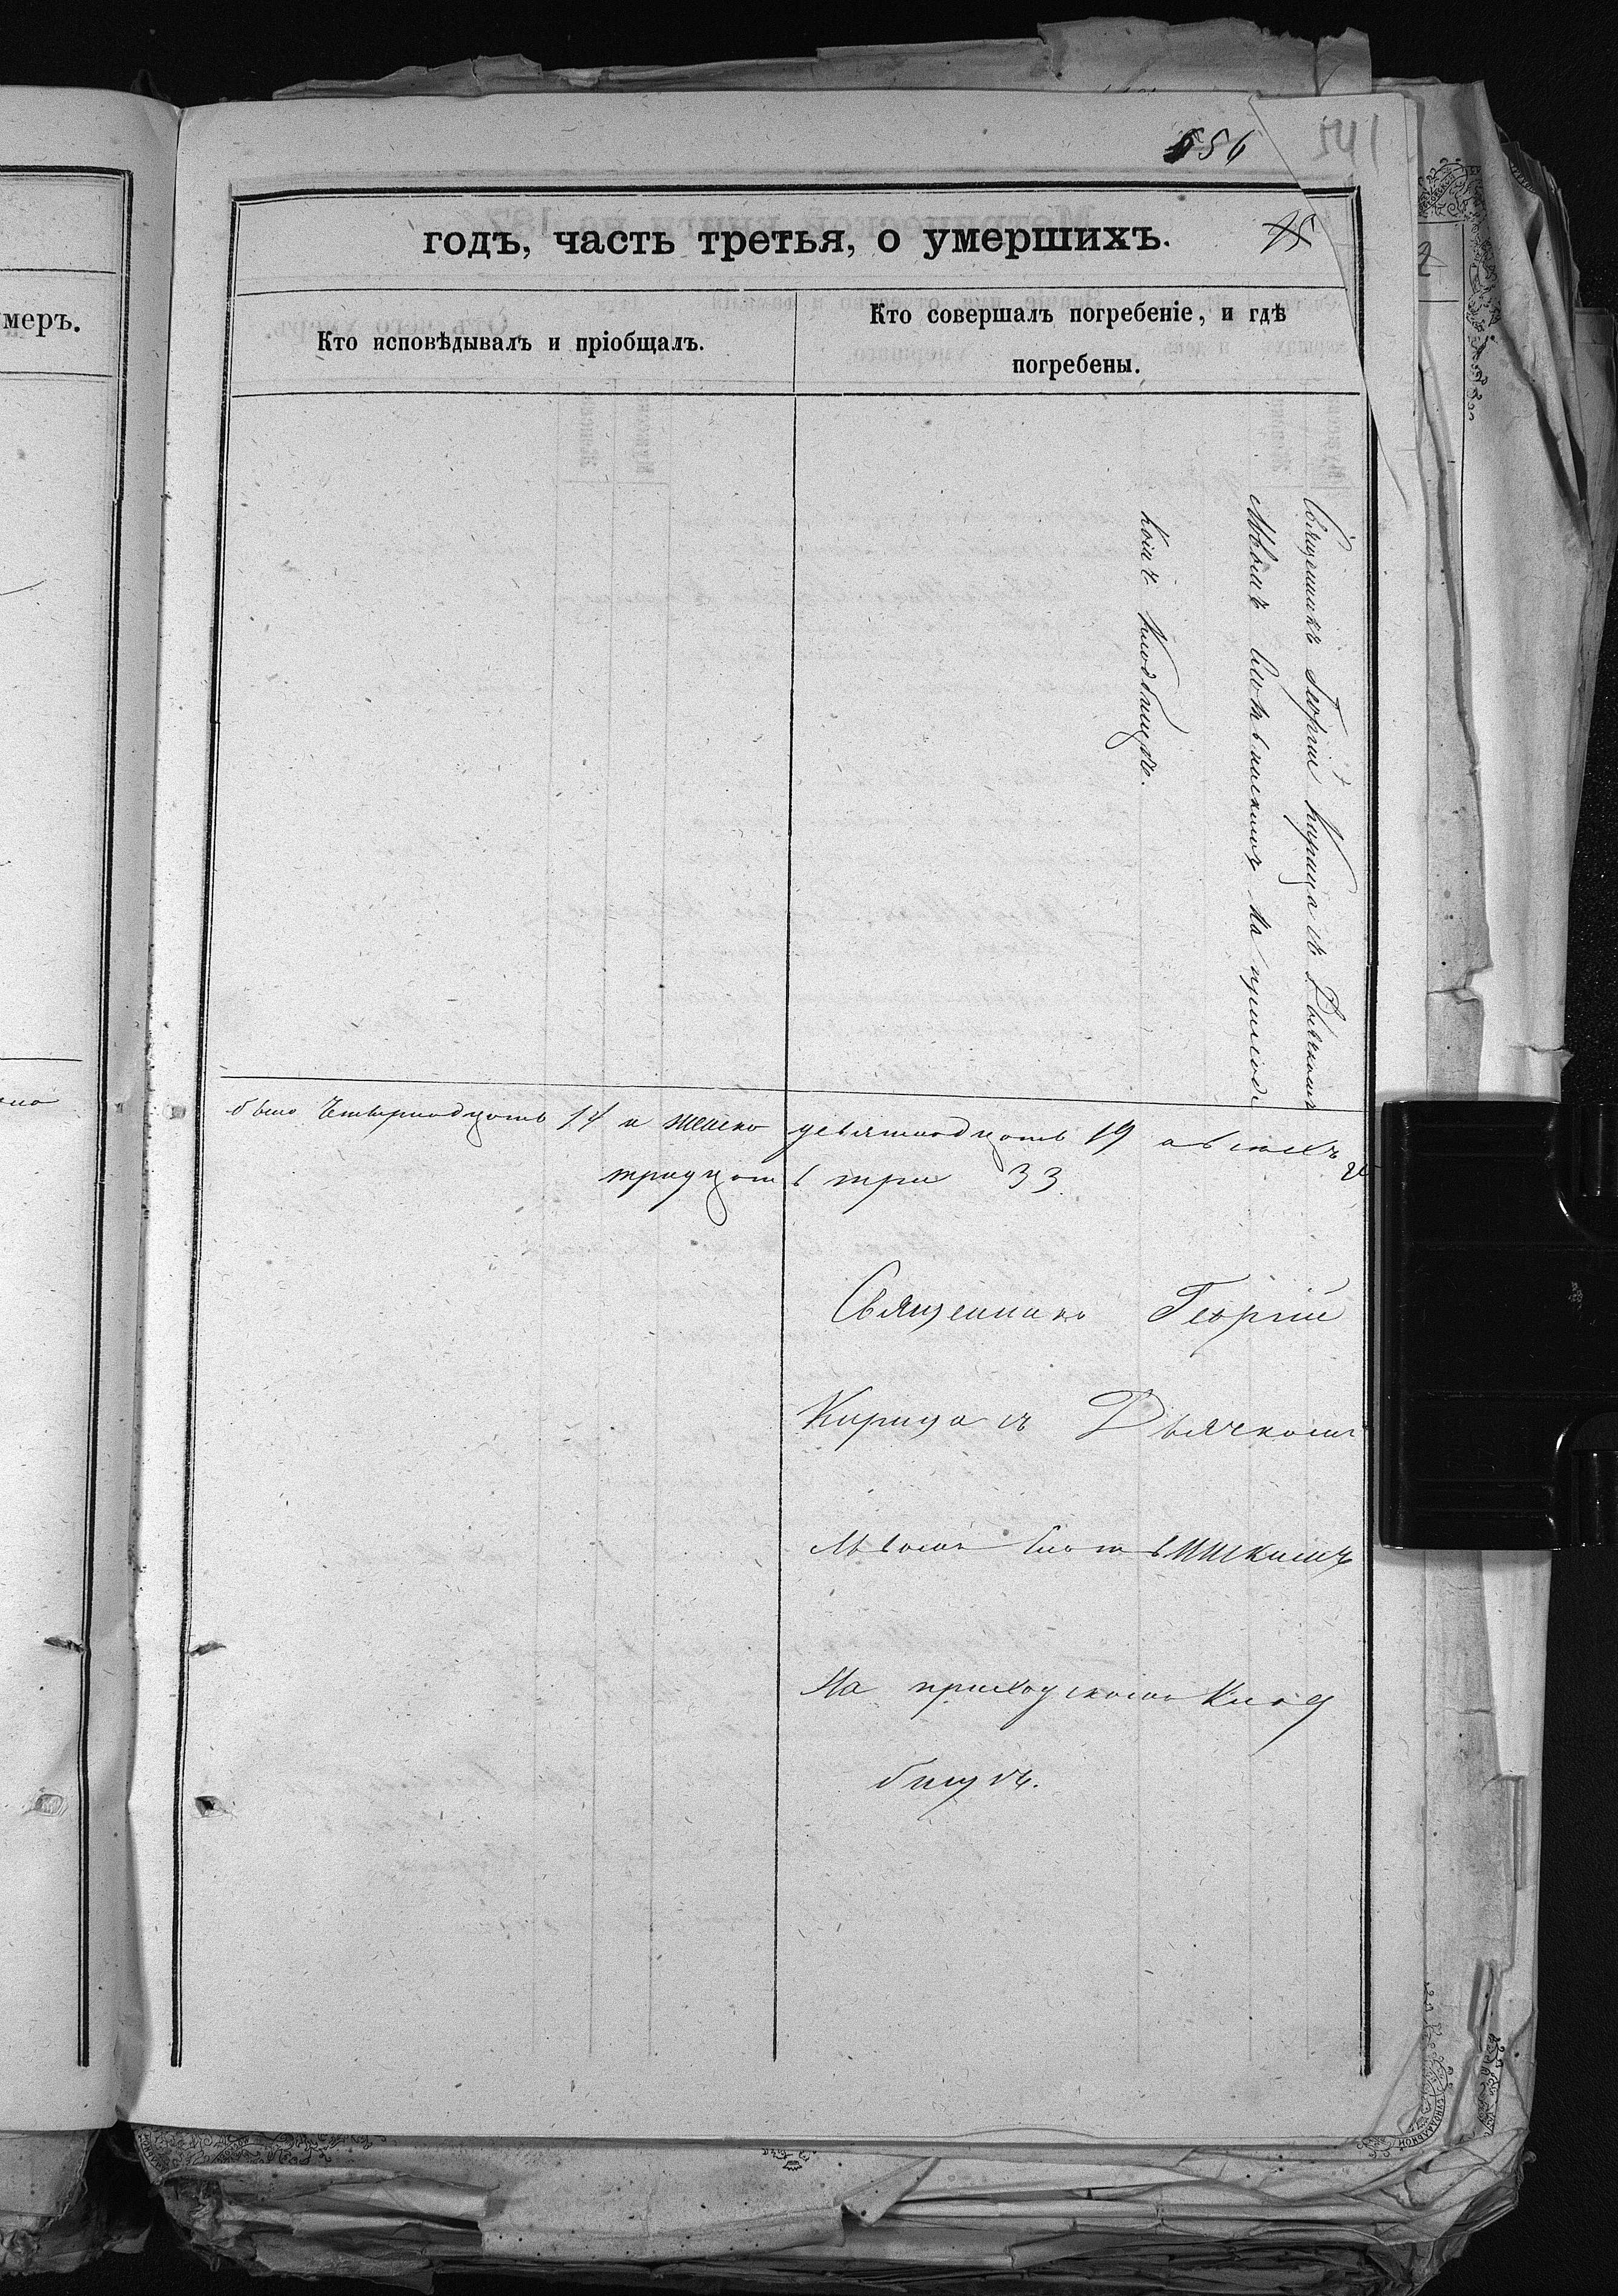 556
541
годъ, часть третья, о умершихъ.
75
умеръ.
Кто исповѣдывалъ и пріобщалъ.
Кто совершалъ погребеніе, и гдѣ
погребены.
Священникъ Георгій Кирица съ Дьячкомъ
на приход
комъ кладбищѣ.
было четырнадцать 14 и женска девятнадцать 19 а всѣхъ
тридцать три 33.
Священникъ Георгій
Кирица съ Дьячкомъ
На приходскомъ клад
бищѣ.
2